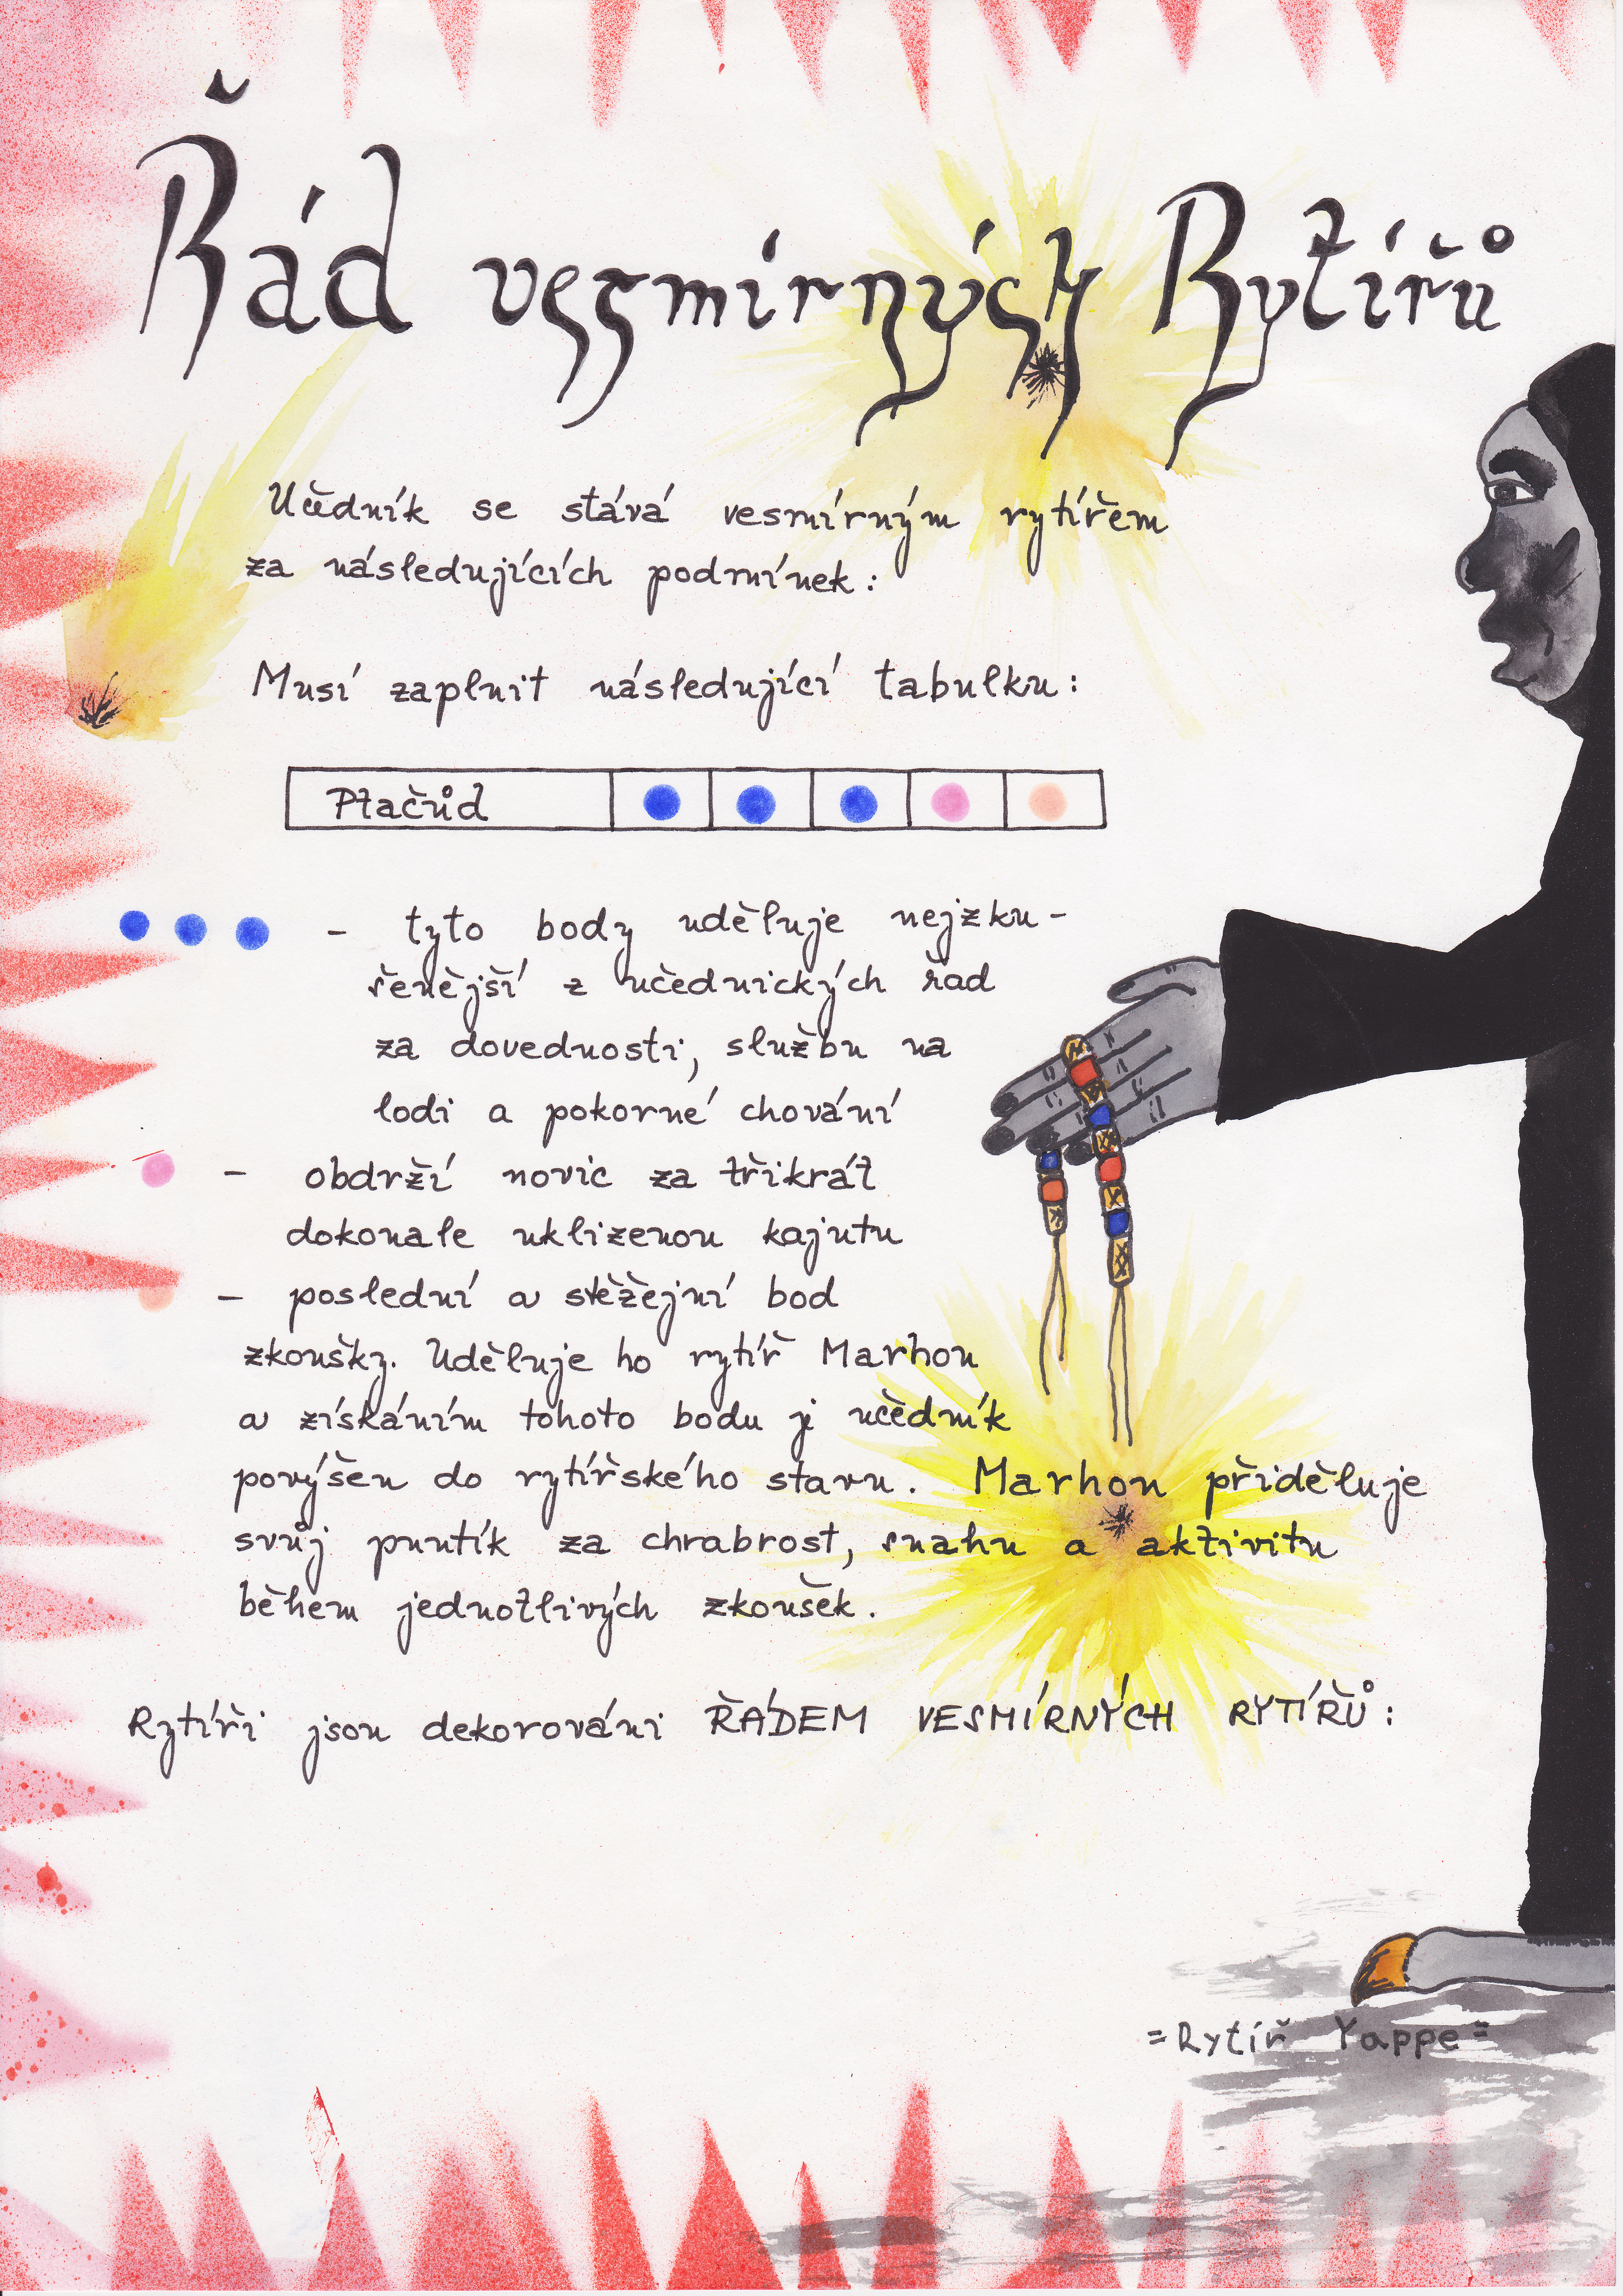 Řád vesmírných Rytířů
Učedník se stává vesmírným rytířem
za následujících podmínek:
Musí zaplnit následující tabulku:
Ptačůd
- tyto body uděluje nejzku-
šenější z učednických řad
za dovednosti, službu na
lodi a pokorné chování
- obdrží novic za třikrát
dokonale uklizenou kajutu
- poslední a stěžejní bod
zkoušky. Uděluje ho rytíř Marhou
a získáním tohoto bodu je učedník
povýšen do rytířského stavu. Marhou přiděluje
svůj puntík za chrabrost, snahu a aktivitu
během jednotlivých zkoušek.
Rytíři jsou dekorováni ŘÁDEM VESMÍRNÝCH RYTÍŘŮ:
=Rytíř Yappe=